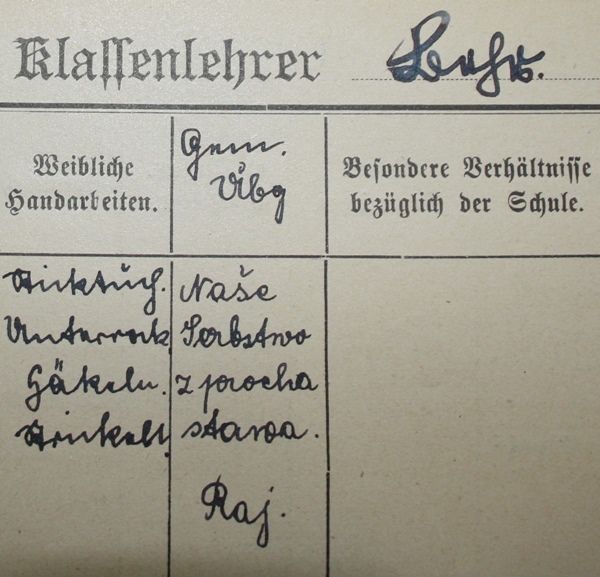 Klassenlehrer
Gem.
Übg
Weibliche
Handarbeiten.
Besondere Verhältnisse
bezüglich der Schule.
Sticktuch.
Unterrock
Häkeln.
Naše
Serbstwo
z procha
stawa.
Raj.